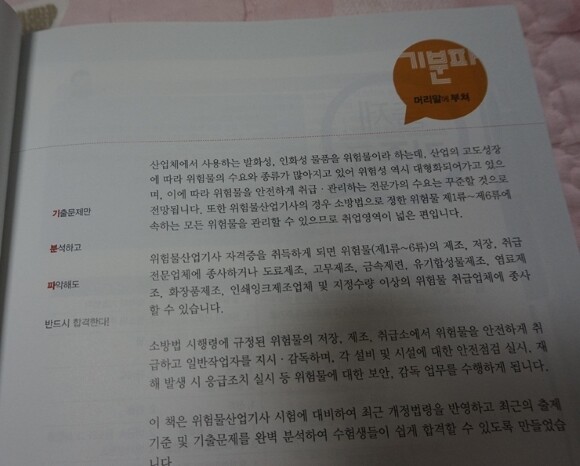 기분파
머리말에 부쳐
산업체에서 사용하는 발화성, 인화성 물품을 위험물이라 하는데, 산업의 고도성장
에 따라 위험물의 수요와 종류가 많아지고 있어 위험성 역시 대형화되어가고 있으
며, 이에 따라 위험물을 안전하게 취급·관리하는 전문가의 수요는 꾸준할 것으로
전망됩니다. 또한 위험물산업기사의 경우 소방법으로 정한 위험물 제1류~제6류에
속하는 모든 위험물을 관리할 수 있으므로 취업영역이 넓은 편입니다.
기출문제만
분석하고
파악해도
반드시 합격한다!
위험물산업기사 자격증을 취득하게 되면 위험물(제1류~6류)의 제조, 저장, 취급
전문업체에 종사하거나 도료제조, 고무제조, 금속제련, 유기합성물제조, 염료제
조, 화장품제조, 인쇄잉크제조업체 및 지정수량 이상의 위험물 취급업체에 종사
할 수 있습니다.
소방법 시행령에 규정된 위험물의 저장, 제조, 취급소에서 위험물을 안전하게 취
급하고 일반작업자를 지시·감독하며, 각 설비 및 시설에 대한 안전점검 실시, 재
해 발생 시 응급조치 실시 등 위험물에 대한 보안, 감독 업무를 수행하게 됩니다.
이 책은 위험물산업기사 시험에 대비하여 최근 개정법령을 반영하고 최근의 출제
기준 및 기출문제를 완벽 분석하여 수험생들이 쉽게 합격할 수 있도록 만들었습
니다